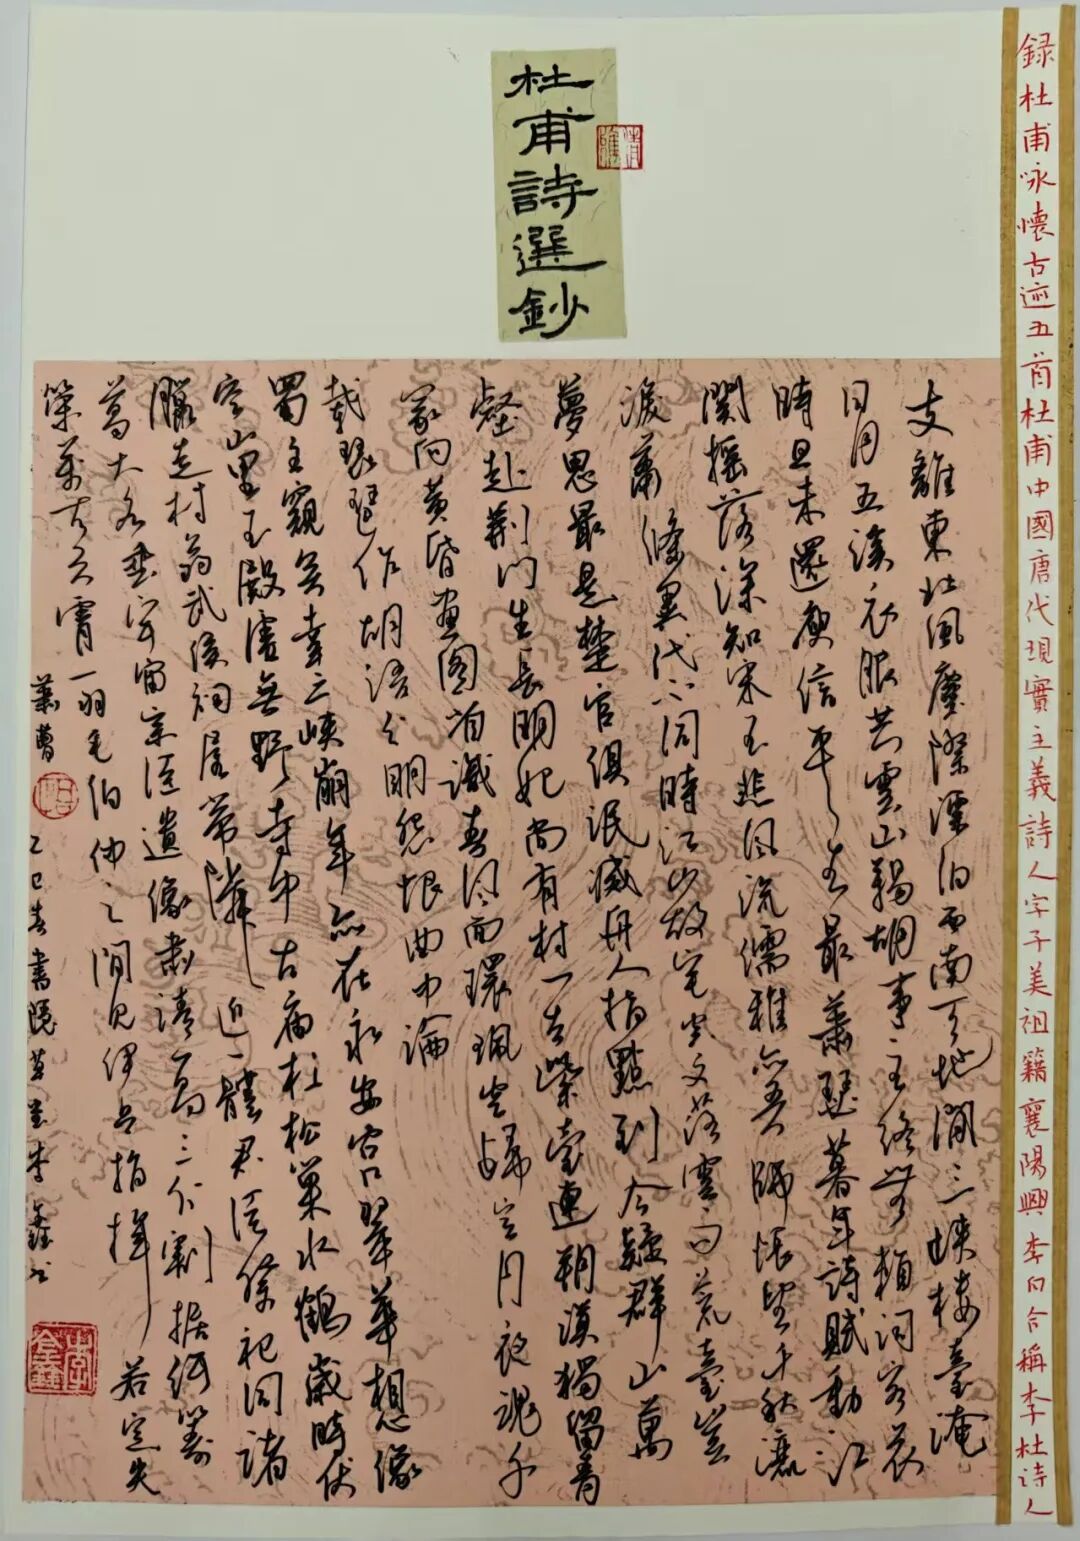 杜甫詩選鈔
録杜甫咏懷古迹五首杜甫中國唐代現實主義詩人字子美祖籍襄陽興李白合稱李杜诗人
支離東北風塵際漂泊西南天地間三峡楼臺淹
日月五溪衣服共雲山羯胡事主終無賴詞客哀
時且未還庾信平生最蕭瑟暮年詩賦動江
関摇落深知宋玉悲風流儒雅亦吾師悵望千秋灑
淚蕭條異代不同時江山故宅空文藻雲雨荒臺豈
夢思最是楚宫俱泯滅舟人指點到今疑群山萬
壑赴荆门生長明妃尚有村一去紫臺連朔漠獨留青
冢向黄昏畫圖省識春風面環珮空歸空月夜魂千
載琵琶作胡語分明怨恨曲中論
蜀主窺吴幸三峡崩年亦在永安宫翠華想像
空山里玉殿虚無野寺中古廟杉松巢水鶴歲時伏
臘走村翁武侯祠屋常隣近一體君臣祭祀同諸
葛大名垂宇宙宗臣遺像肅清高三分割據紆籌
策萬古雲霄一羽毛伯仲之間見伊吕指揮若定失
蕭曹 乙巳春書 草堂李鑫书
李鑫